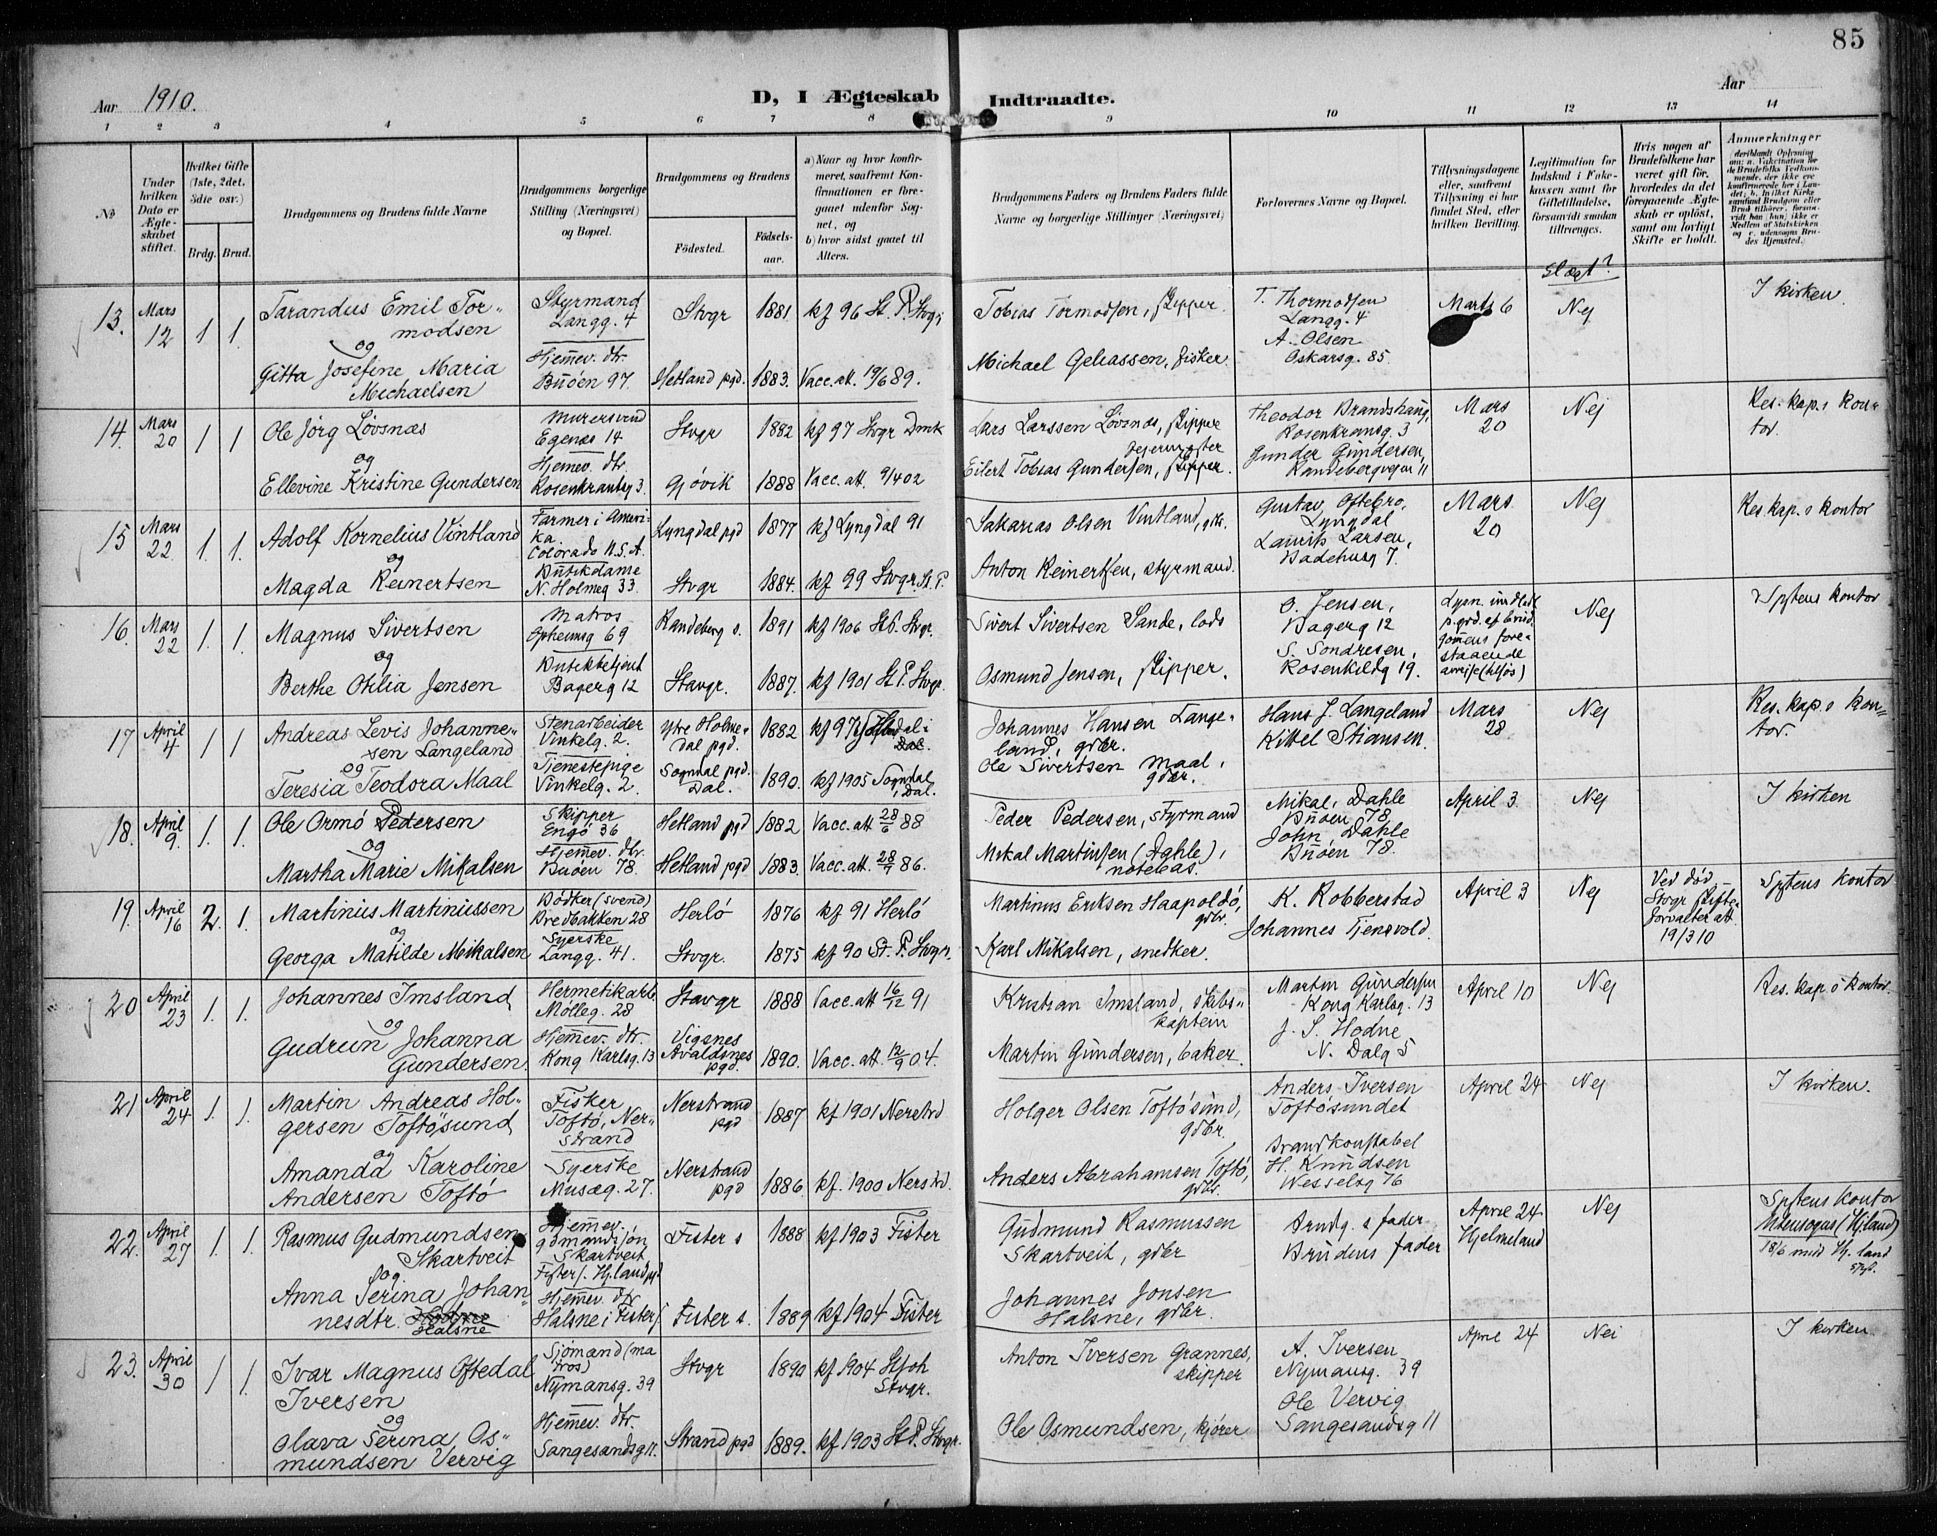 85
Aar 1910.
D, I Ægteskab Indtraadte.
Aar
1 2 3 4 5 6 7 8 9 10 11 12 13 14
No
Under hvilken Dato er Ægteskabet stiftet.
Hvilket Gifte (1ste, 2det, 3die osv.)
Brdg. Brud.
Brudgommens og Brudens fulde Navne
Brudgommens borgerlige Stilling (Næringsvei) og Bopæl.
Brudgommens og Brudens
Fødested. Fødsels-aar.
a) Naar og hvor konfirmeret, saafremt Konfirmationen er foregaaet udenfor Sognet, og
b) hvor sidst gaaet til Alters.
Brudgommens Faders og Brudens Faders fulde Navne og borgerlige Stillinger (Næringsvei)
Forlovernes Navne og Bopæl.
Tillysningsdagene eller, saafremt Tillysning ei har fundet Sted, efter hvilken Bevilling.
Legitimation for Indskud i Enkekassen samt for Giftetilladelse, forsaavidt saadan tiltrænges.
Hvis nogen af Brudefolkene har været gift før, hvorledes da det foregaaende Ægteskab er opløst, samt om lovligt Skifte er holdt.
Anmerkninger
Slægt?
13. Mars 12 1 1 Tarandus Emil Tormodsen Styrmand Langg. 4 Stvgr 1881 kf 96 St. P. Stvgr. Tobias Tormodsen, skipper. T. Thormodsen Langg. 4 Marts 6 Nej I kirken.
og
Gitta Josefine Maria Michaelsen Hjemev. dtr. Buöen 97. Hetland pgd. 1883. Vacc. att. 19/6 89. Michael Geleassen, fisker A. Olsen Oskarsg. 85
14. Mars 20 1 1 Ole Jörg Lövsnæs Murersvend Egenæs 14 Stvgr 1882 kf 97 Stvgr Dmk Lars Larssen Lövsnæs, skipper Theodor Brandshaug, Rosenkransg. 3 Mars 20 Nej Res. kap.s kontor.
og
Ellevine Kristine Gundersen Hjemev. dtr. Rosenkrantzg 3. Gjøvik 1888 Vacc. att. 9/4 02 Eilert Tobias Gundersen, skipper. Gunder Gundersen, Randebergveien 11
15 Mars 22 1. 1. Adolf Kornelius Vintland Farmer i Amerika Colorado U.S.A. Lyngdal pgd 1877 kf Lyngdal 91 Sakarias Olsen Vintland, gbr. Gustav Oftebro, Lyngdal Mars 20 Nej Res. kap.s kontor
og
Magda Reinertsen Butikdame N. Holmeg 33. Stvgr 1884. kf 99 Stvgr. St. P. Anton Reinertsen, styrmand. Laurits Larsen, Badehusg 7.
16. Mars 22 1. 1. Magnus Sivertsen Matros Opheimsg 69 Randeberg s. 1891 kf 1906 Stb. Stvgr. Sivert Sivertsen Sande, lods O. Jensen, Bagerg 12 Nej Spytens kontor
og
Berthe Otilia Jensen Butikbetjent Bagerg 12 Stavgr. 1887. kf 1901 St P. Stvgr. Osmund Jensen, skipper. S. Sondresen, Rosenkildg 19.
17 April 4 1 1 Andreas Levis Johannesen Langeland Stenarbeider Vinkelg. 2. Ytre Holmedal pgd. 1882 kf 97 Johannes Hansen Langeland, gdbr. Hans J. Langeland Mars 28 Nej Res. kap.s kontor.
og
Teresia Teodora Maal Tjenestepige Vinkelg. 2. Sogndal pgd. Dal. 1890. kf 1905 Sogndal, Dal. Ole Sivertsen Maal, gdbr. Kittel Stiansen.
18. April 9. 1. 1. Ole Ormö Pedersen Skipper Engö 36 Hetland pgd 1882 Vacc. att 28/6 88 Peder Pedersen, styrmand Mikal Dahle Buöen 78 April 3 Nej I kirken
og
Martha Marie Mikalsen Hjemev. dtr. Buöen 78. Hetland pgd 1883. Vacc. att. 28/7 86. Mikal Martinsen (Dahle), notebas. John Dahle Buöen 78.
19. April 16 2. 1. Martinius Martiniussen Bödker (svend) Bredbakken 28 Herlö 1876 kf 91 Herlö Martinus Eriksen Haapoldö, gdbr. K. Robberstad April 3 Nej Ved död Stvgr skifteforvalter att 19/3 10 Spytens kontor
og
Georga Matilde Mikalsen Syerske Langg. 41. Stvgr. 1875 kf 90 St. P. Stvgr. Karl Mikalsen, snedker. Johannes Tjensvold.
20 April 23 1. 1. Johannes Imsland Hermetikarb. Mölleg. 28 Stavgr 1888 Vacc. att 16/12 91 Kristian Imsland, skibskaptein Martin Gundersen Kong Karlsg. 13 April 10 Nej Res. kap.s kontor.
og
Gudrun Johanna Gundersen Hjemev. dtr. Kong Karlsg. 13 Vigsnes Avaldsnes pgd. 1890. Vacc. att. 12/9 04. Martin Gundersen, baker. J. S. Hodne N. Dalg 5
21 April 24 1. 1. Martin Andreas Holgersen Toftösund Fisker Toftö, Nerstrand Nerstrand pgd 1887 kf 1901 Nerstrd Holger Olsen Toftösund, gdbr. Anders Iversen Toftösundet April 24 Nej I kirken.
og
Amanda Karoline Andersen Toftö Syerske Musæg. 27. Nerstrand pgd 1886. kf. 1900 Nerstrd. Anders Abrahamsen Toftö, gdbr. Brandkonstabel H. Knudsen Wesselsg 76
22. April 27 1. 1. Rasmus Gudmundsen Skartveit Hjemev. Skartveit Fister s. Hjelland pgd Fister s 1888 kf 1903 Fister Gudmund Rasmussen Skartveit, gdbr Brudg.s fader April 24 Hjelmeland Nej Spytens kontor Utensogns (Hjland) 18/6 med Hj.land
og
Anna Serina Johannesdtr. Halsne Hjemev. dtr Halsne i Fister s Fister s. 1889 kf 1904 Fister Johannes Jonsen Halsne, gdbr. Brudens fader
23. April 30 1 1. Ivar Magnus Oftedal Iversen Sjömand (matros) Nymansg. 39 Stvgr 1890 kf 1904 St Joh Stvgr. Anton Iversen Grannes, skipper A. Iversen Nymansg. 39 April 24 Nei I kirken.
og
Olava Serina Osmundsen Vervig Hjemev. dtr. Sangesandsg 11. Strand pgd 1889. kf 1903 St P. Stvgr. Ole Osmundsen, kjører Ole Vervig Sangesandsg 11